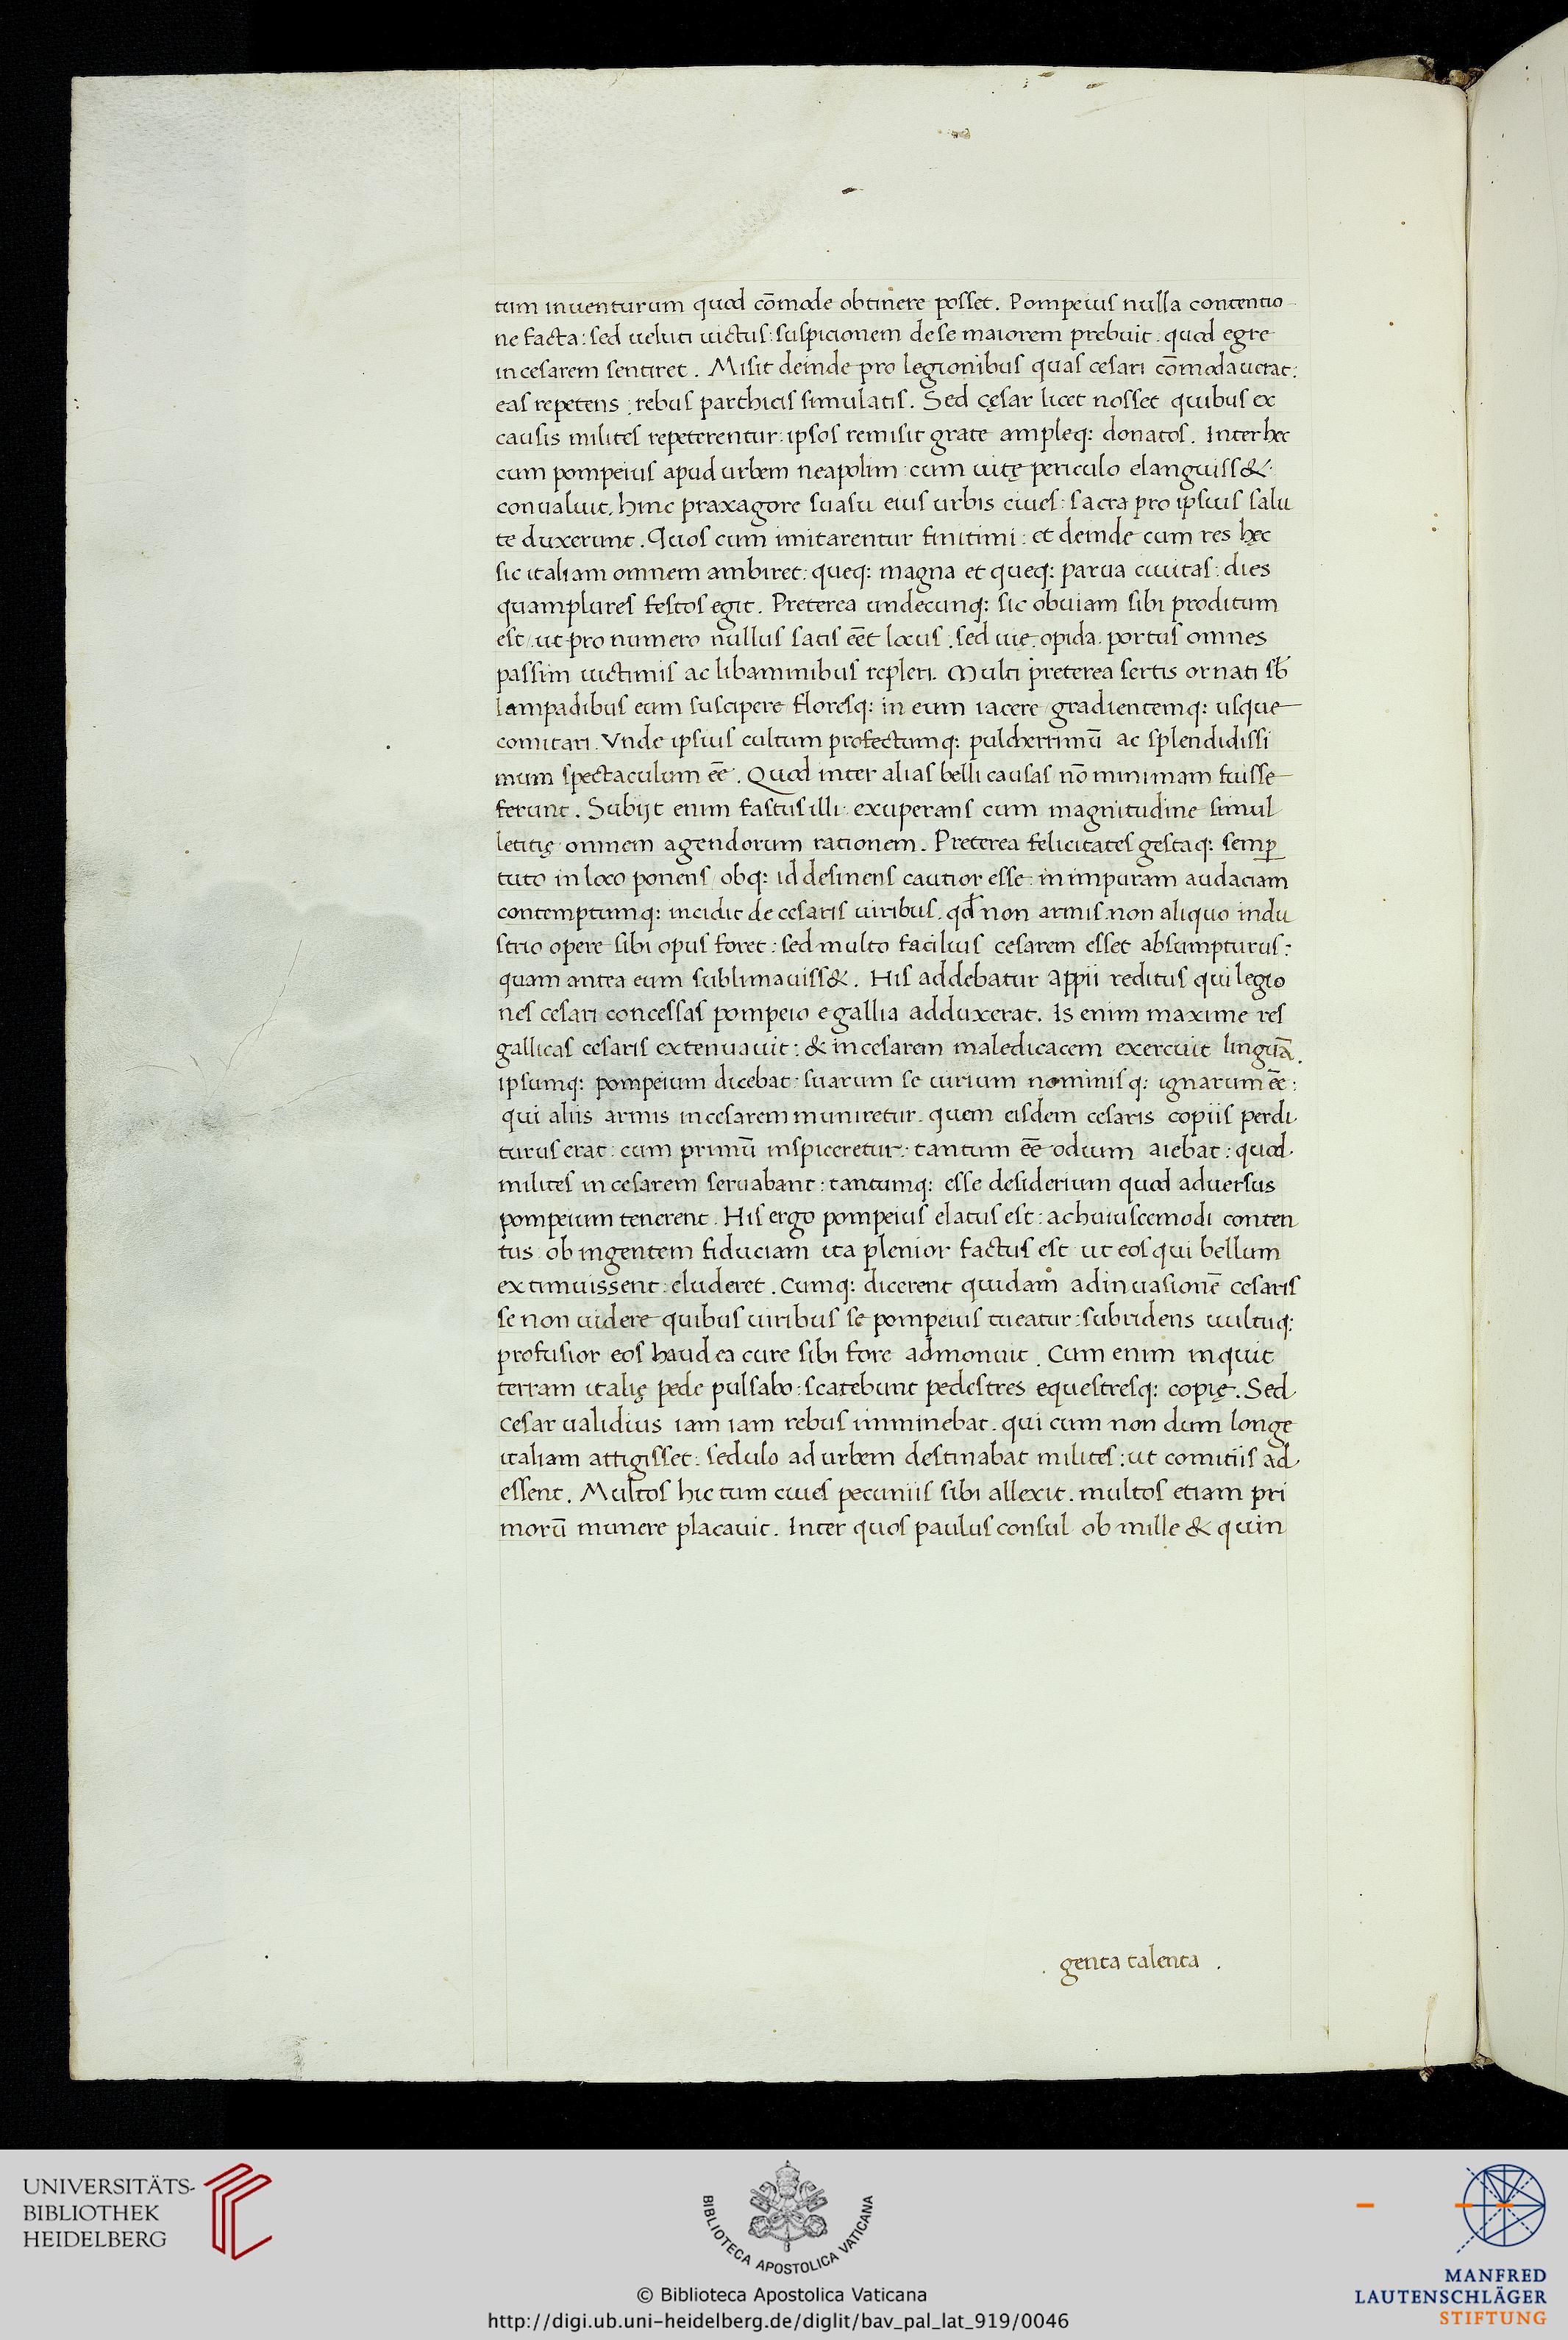 tum inuenturum quod cōmode obtinere posset. Pompeius nulla contentio
ne facta: sed ueluti uictus: suspicionem de se maiorem prebuit: quod egre
in cesarem sentiret. Misit deinde pro legionibus quas cesari cōmodauerat:
eas repetens: rebus parthicis simulatis. Sed cęsar licet nosset quibus ex
causis milites repeterentur: ipsos remisit grate ampleq: donatos. Inter hec
cum pompeius apud urbem neapolim: cum uitę periculo elanguiss&:
conualuit. hinc praxagore suasu eius urbis ciues: sacra pro ipsius salu
te duxerunt. Quos cum imitarentur finitimi: et deinde cum res hęc
sic italiam omnem ambiret: queq: magna et queq: parua ciuitas: dies
quamplures festos egit. Preterea undecunq: sic obuiam sibi proditum
est/ ut pro numero nullus satis eēt locus: sed uię. opida. portus omnes
passim uictimis ac libaminibus repleri. Multi preterea sertis ornati sb̄
lampadibus eum suscipere floresq: in eum iacere/ gradientemq: usque
comitari. Vnde ipsius cultum profectumq: pulcherrimū ac splendidissi
mum spectaculum eē. Quod inter alias belli causas nō minimam fuisse
ferunt. Subijt enim fastus illi: exuperans cum magnitudine simul
letitię omnem agendorum rationem. Preterea felicitates gestaq: semꝑ
tuto in loco ponens/ obq: id desinens cautior esse: in impuram audaciam
contemptumq: incidit de cesaris uiribus. qđ non armis non aliquo indu
strio opere sibi opus foret: sed multo facilius cesarem esset absumpturus:
quam antea eum sublimauiss&. His addebatur Appii reditus qui legio
nes cesari concessas pompeio e gallia adduxerat. Is enim maxime res
gallicas cesaris extenuauit: & in cesarem maledicacem exercuit linguā.
ipsumq: pompeium dicebat: suarum se uirium nominisq: ignarum eē:
qui aliis armis in cesarem muniretur. quem eisdem cesaris copiis perdi
turus erat: cum primū inspiceretur: tantum eē odium aiebat: quod
milites in cesarem seruabant: tantumq: esse desiderium quod aduersus
pompeium tenerent. His ergo pompeius elatus est: ac huiuscemodi conten
tus: ob ingentem fiduciam ita plenior factus est ut eos qui bellum
extimuissent: eluderet. Cumq: dicerent quidam ad inuasionē cesaris
se non uidere quibus uiribus se pompeius tueatur: subridens uultuq:
profusior eos haud ea cure sibi fore admonuit. Cum enim inquit
terram italię pede pulsabo: scatebunt pedestres equestresq: copię. Sed
cesar ualidius iam iam rebus imminebat. qui cum non dum longe
italiam attigisset: sedulo ad urbem destinabat milites: ut comitiis ad
essent. Multos hic tum ciues pecuniis sibi allexit. multos etiam pri
morū munere placauit. Inter quos paulus consul ob mille & quin
. genta talenta .
UNIVERSITÄTS-
BIBLIOTHEK
HEIDELBERG
BIBLIOTECA APOSTOLICA VATICANA
© Biblioteca Apostolica Vaticana
http://digi.ub.uni-heidelberg.de/diglit/bav_pal_lat_919/0046
MANFRED
LAUTENSCHLÄGER
STIFTUNG